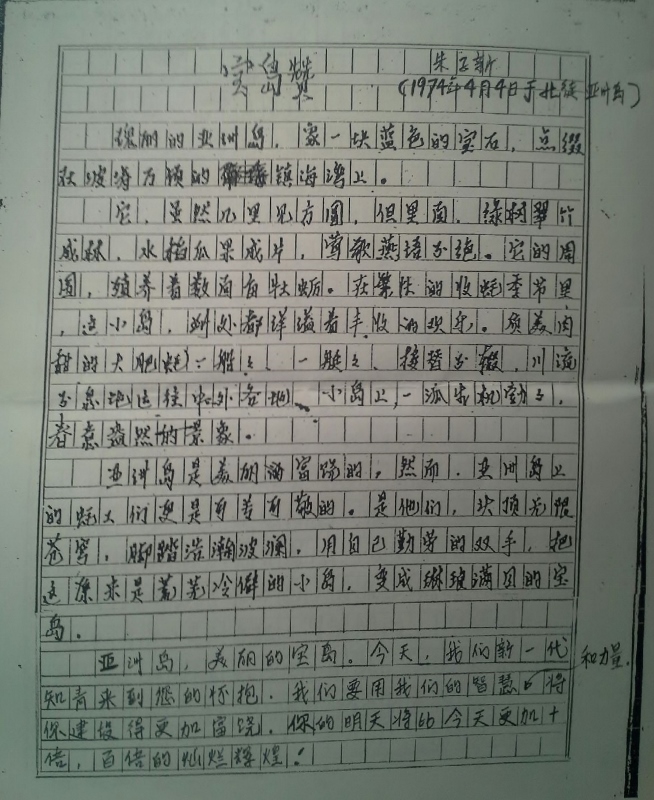 宝岛赞
朱
(1974年4月4日于北 亚洲岛)
瑰丽的亚洲岛，象一块蓝色的宝石，点缀
在波涛万顷的镇海湾上。
它，虽然几里见方圆，但里面，绿树翠竹
成林，水稻瓜果成片，莺歌燕语不绝。它的周
围，殖养着数面亩牡蛎。在繁忙的收蚝季节里
，这小岛，到处都洋溢着丰收的欢乐。质美肉
甜的大肥蚝一船々，一艇々，接替不辍，川流
不息地运往中外各地、小岛上，一派生机勃々，
春意盎然的景象。
亚洲岛是美丽的富饶的，然而，亚洲岛上
的蚝工们更是可意可敬的。是他们，头顶无限
苍穹，脚踏浩瀚波澜，用自己勤劳的双手，把
这原来是荒芜冷僻的小岛，变成琳琅满目的宝
岛。
亚洲岛，美丽的宝岛。今天，我们新一代
知青来到您的怀抱，我们要用我们的智慧和力量将
你建设得更加富饶，你的明天将比今天更加十
倍，百倍的灿烂辉煌！